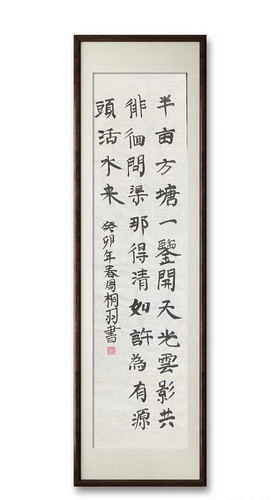 半亩方塘一鑒開天光雲影共
徘徊問渠那得清如許為有源
頭活水来
癸卯年春周桐羽書